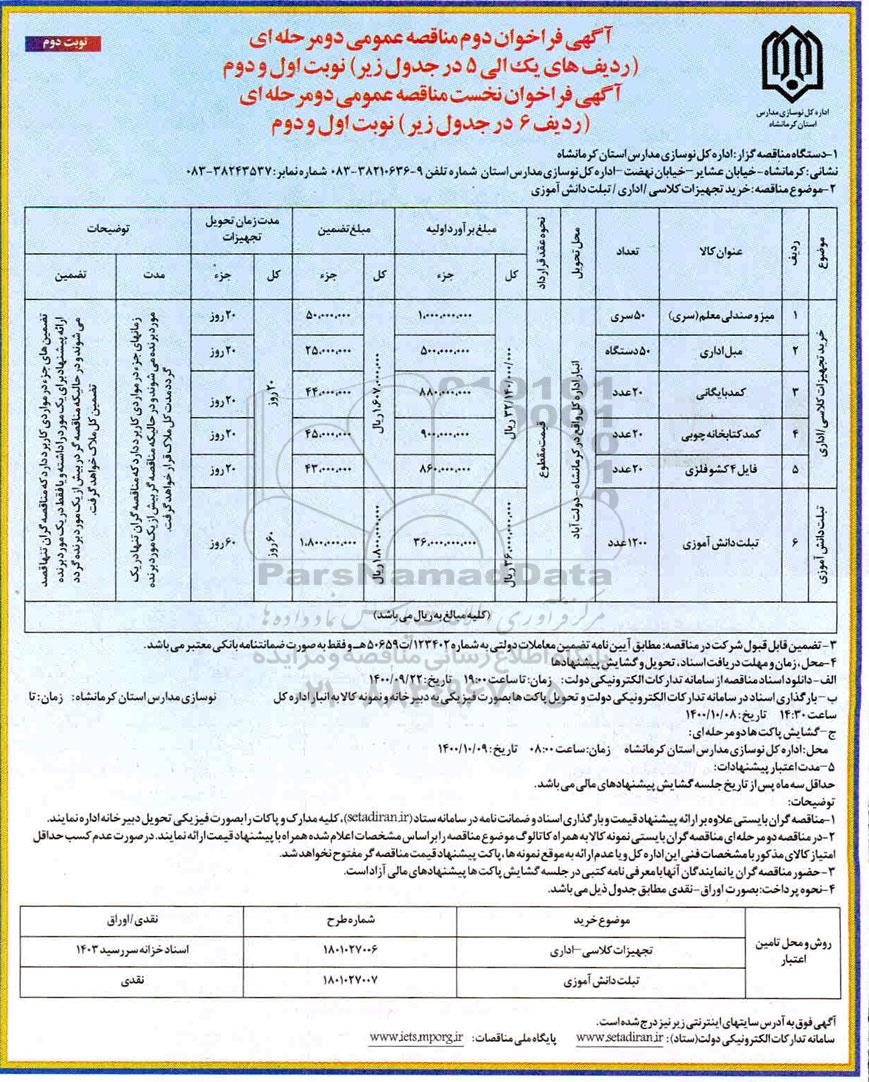 آگهی فراخوان دوم مناقصه عمومی دومرحله ای
(ردیف های یک الی ۵ در جدول زیر) نوبت اول و دوم
آگهی فراخوان نخست مناقصه عمومی دومرحله ای
(ردیف ۶ در جدول زیر) نوبت اول و دوم
نوبت دوم
اداره کل نوسازی مدارس
استان کرمانشاه
۱-دستگاه مناقصه گزار: اداره کل نوسازی مدارس استان کرمانشاه
نشانی: کرمانشاه-خیابان عشایر-خیابان نهضت-اداره کل نوسازی مدارس استان شماره تلفن ۹-۳۸۲۱۰۶۳۶-۰۸۳ شماره نمابر: ۳۸۲۴۳۵۳۷-۰۸۳
۲-موضوع مناقصه: خرید تجهیزات کلاسی /اداری / تبلت دانش آموزی
موضوع ردیف عنوان کالا تعداد محل تحویل نحوه عقد قرارداد مبلغ برآورد اولیه مبلغ تضمین مدت زمان تحویل تجهیزات توضیحات
کل جزء کل جزء کل جزء مدت تضمین
خرید تجهیزات کلاسی /اداری
۱ میز و صندلی معلم (سری) ۵۰ سری ۱،۰۰۰،۰۰۰،۰۰۰ ۵۰،۰۰۰،۰۰۰ ۲۰ روز
۲ مبل اداری ۵۰ دستگاه ۵۰۰،۰۰۰،۰۰۰ ۲۵،۰۰۰،۰۰۰ ۲۰ روز
۳ کمد بایگانی ۲۰ عدد ۸۸۰،۰۰۰،۰۰۰ ۴۴،۰۰۰،۰۰۰ ۲۰ روز
۴ کمد کتابخانه چوبی ۲۰ عدد ۹۰۰،۰۰۰،۰۰۰ ۴۵،۰۰۰،۰۰۰ ۲۰ روز
۵ فایل ۴ کشو فلزی ۲۰ عدد ۸۶۰،۰۰۰،۰۰۰ ۴۳،۰۰۰،۰۰۰ ۲۰ روز
انبار اداره کل واقع در کرمانشاه - دولت آباد
قیمت مقطوع
۳۲/۱۴۰/۰۰۰/۰۰۰ ریال
۱،۶۰۷،۰۰۰،۰۰۰ ریال
۲۰ روز
تبلت دانش آموزی
۶ تبلت دانش آموزی ۱۲۰۰ عدد ۳۶،۰۰۰،۰۰۰،۰۰۰ ریال ۳۶،۰۰۰،۰۰۰،۰۰۰ ۱،۸۰۰،۰۰۰،۰۰۰ ریال ۱،۸۰۰،۰۰۰،۰۰۰ ۶۰ روز ۶۰ روز
زمانهای جزء در مواردی کاربرد دارد که مناقصه گران تنها در یک
مورد برنده می شوند و در حالیکه مناقصه گر بیش از یک مورد برنده
گردد مدت کل ملاک قرار خواهد گرفت.
تضمین های جزء در مواردی کاربرد دارد که مناقصه گران تنها قصد
ارائه پیشنهاد برای یک مورد را داشته و یا فقط در یک مورد برنده
می شوند و در حالیکه مناقصه گر در بیش از یک مورد برنده گردد
تضمین کل ملاک خواهد گرفت.
(کلیه مبالغ به ریال می باشد)
۳- تضمین قابل قبول شرکت در مناقصه: مطابق آیین نامه تضمین معاملات دولتی به شماره ۱۲۳۴۰۲/ت۵۰۶۵۹هـ و فقط به صورت ضمانتنامه بانکی معتبر می باشد.
۴-محل، زمان و مهلت دریافت اسناد، تحویل و گشایش پیشنهادها
الف-دانلود اسناد مناقصه از سامانه تدارکات الکترونیکی دولت: زمان: تا ساعت ۱۹:۰۰ تاریخ: ۱۴۰۰/۰۹/۲۲
ب-بارگذاری اسناد در سامانه تدارکات الکترونیکی دولت و تحویل پاکت ها بصورت فیزیکی به دبیرخانه و نمونه کالا به انبار اداره کل نوسازی مدارس استان کرمانشاه: زمان: تا
ساعت ۱۴:۳۰ تاریخ: ۱۴۰۰/۱۰/۰۸
ج-گشایش پاکت ها دو مرحله ای:
محل: اداره کل نوسازی مدارس استان کرمانشاه زمان: ساعت ۰۸:۰۰ تاریخ: ۱۴۰۰/۱۰/۰۹
۵-مدت اعتبار پیشنهادات:
حداقل سه ماه پس از تاریخ جلسه گشایش پیشنهادهای مالی می باشد.
توضیحات:
۱-مناقصه گران بایستی علاوه بر ارائه پیشنهاد قیمت و بارگذاری اسناد و ضمانت نامه در سامانه ستاد (setadiran.ir)، کلیه مدارک و پاکات را بصورت فیزیکی تحویل دبیرخانه اداره نمایند.
۲-در مناقصه دو مرحله ای مناقصه گران بایستی نمونه کالا به همراه کاتالوگ موضوع مناقصه را بر اساس مشخصات اعلام شده همراه با پیشنهاد قیمت ارائه نمایند. در صورت عدم کسب حداقل
امتیاز کالای مذکور با مشخصات فنی این اداره کل و یا عدم ارائه به موقع نمونه ها، پاکت پیشنهاد قیمت مناقصه گر مفتوح نخواهد شد.
۳-حضور مناقصه گران یا نمایندگان آنها با معرفی نامه کتبی در جلسه گشایش پاکت ها پیشنهادهای مالی آزاد است.
۴-نحوه پرداخت: بصورت اوراق-نقدی مطابق جدول ذیل می باشد.
روش و محل تامین اعتبار موضوع خرید شماره طرح نقدی/اوراق
تجهیزات کلاسی-اداری ۱۸۰۱۰۲۷۰۰۶ اسناد خزانه سررسید ۱۴۰۳
تبلت دانش آموزی ۱۸۰۱۰۲۷۰۰۷ نقدی
آگهی فوق به آدرس سایتهای اینترنتی زیر نیز درج شده است.
سامانه تدارکات الکترونیکی دولت (ستاد): www.setadiran.ir پایگاه ملی مناقصات: www.iets.mporg.ir
ParsNamadData